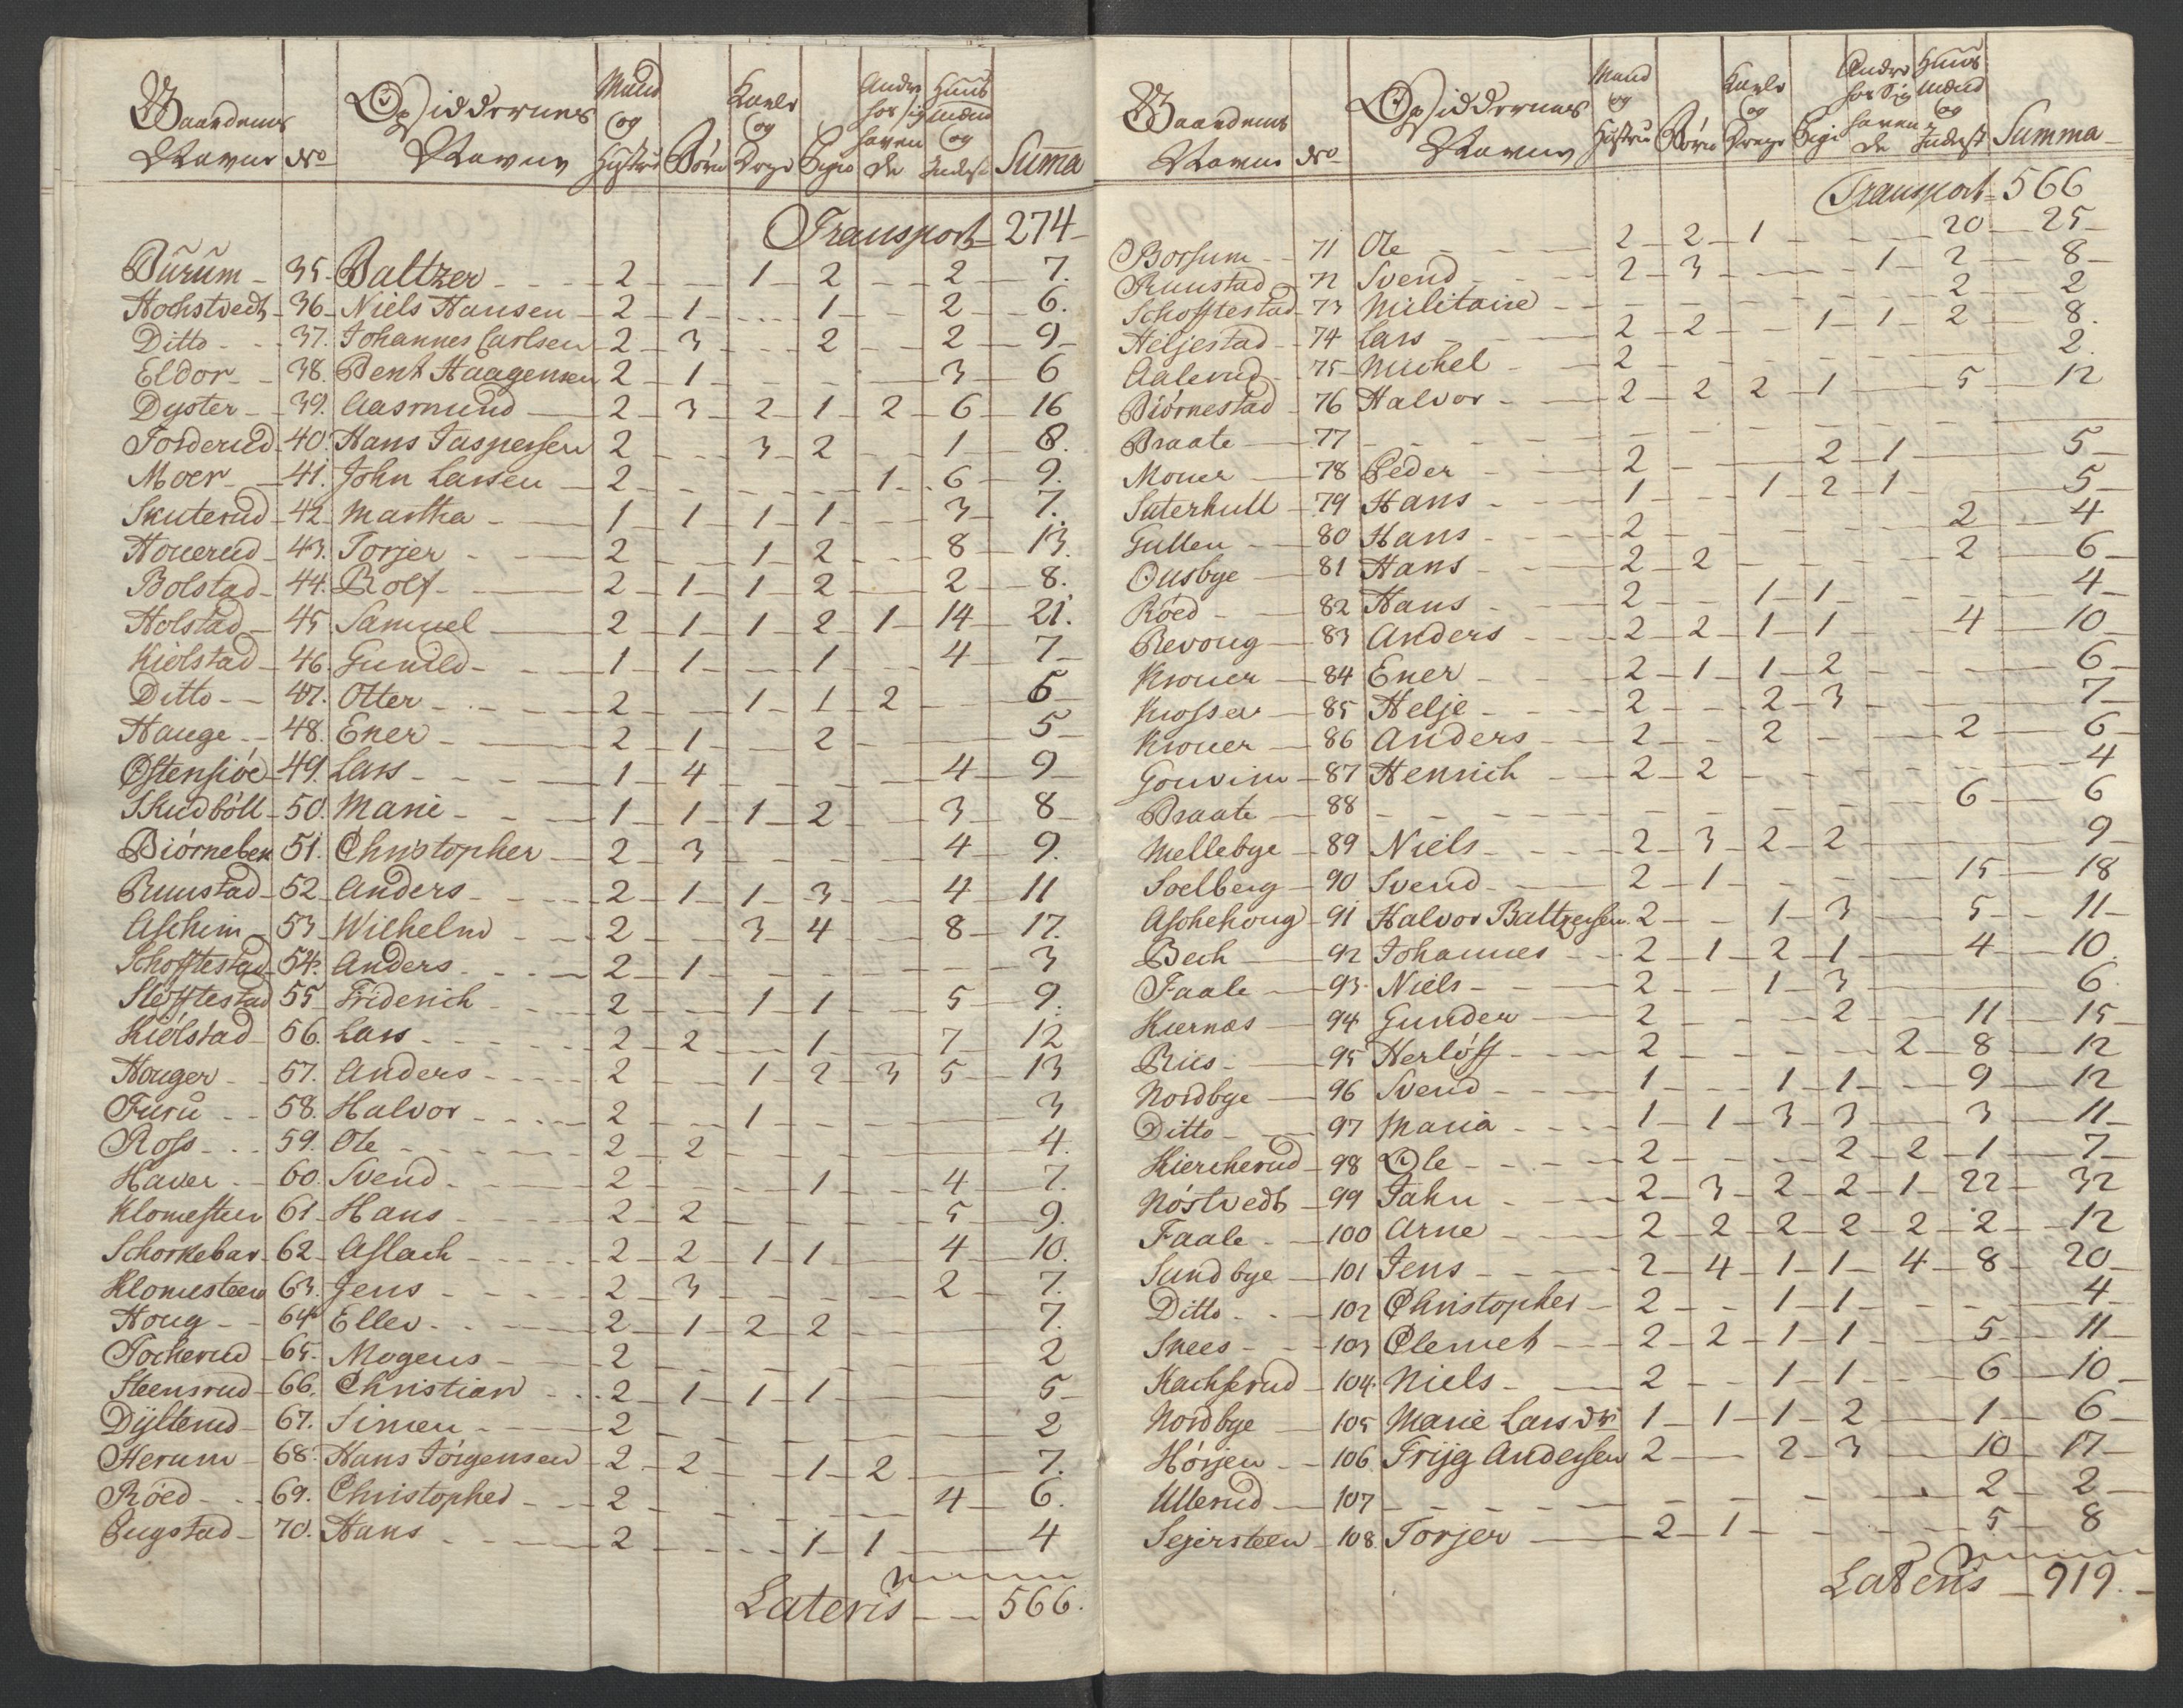 Gaardenes Navne No Opsiddernes Navne Mand og Hustru Börn Karle og Drenge Pigir Andre hos sig havende Huusmænd og Inderst Summa
Transport 274
Bürüm 35 Baltzer 2 1 2 2 7.
Hochstvedt 36 Niels Hansen 2 1 1 2 6.
Ditto 37. Johannes Carlsen 2 3 2 2 9
Eldor 38. Bent Haagensen 2 1 3 6
Dyster 39. Aasmund 2 3 2 1 2 6 16
Torderud 40. Hans Jaspersen 2 3 2 1 8.
Moer 41. John Larsen 2 1 6 9.
Skuterud 42 Martha 1 1 1 1 3 7.
Houerud 43. Torjer 2 1 2 8 13.
Bolstad 44. Rolf 2 1 1 2 2 8.
Holstad 45 Samuel 2 1 1 2 1 14 21.
Kiolstad 46. Gunild 1 1 1 4 7
Ditto 47. Otter 2 1 1 2 6
Hauge 48. Ener 2 1 2 5
Østensiöe 49. Lars 1 4 4 9
Skudböll 50. Marie 1 1 1 2 3 8
Biörnebek 51. Christopher 2 3 4 9.
Ruustad 52 Anders 2 1 1 3 4 11
Aschim 53 Wilhelm 2 3 4 8 17.
Schofftestad 54. Anders 2 1 3
Skofftestad 55 Friderich 2 1 1 5 9.
Kiölstad 56. Lars 2 2 1 7 12
Houger 57. Anders 2 1 2 3 5 13
Furu 58. Halvor 2 1 3
Ross 59. Ole 2 2 4.
Haver 60. Svend 2 1 4 7.
Klomesteen 61 Hans 2 2 5 9.
Schorkebar 62 Aslach 2 2 1 1 4 10.
Klomesteen 63. Jens 2 3 2 7.
Houg 64 Ellev 2 1 2 2 7.
Tocherud 65. Mogens 2 2
Steensrud 66. Christian 2 1 1 1 5
Dÿlterud 67. Simen 2 2
Herum 68. Hans Jörgensen 2 2 1 2 7.
Röed 69. Christopher 2 4 6.
Eugstad 70. Hans 2 1 1 4
Lateris 566.
Gaardenes Navne No Opsiddernes Navne Mand og Hustru Börn Karle og Drenge Pigi Andre hos Sig havende Huusmænd og Inderst Summa
Transport 566
Borsum 71 Ole 2 2 1 20 25
Ruustad 72 Svend 2 3 1 2 8
Schofftestad 73 Militaire 2 2
Heljestad 74 Lars 2 2 1 1 2 8.
Aalerud 75 Michel 2 2.
Biörnestad 76 Halvor 2 2 2 1 5 12
Braate 77
Mouer 78 Peder 2 2 1 5
Saterhull 79 Hans 1 1 2 1 5
Gullen 80 Hans 2 2 4
Ousbye 81 Hans 2 2 2 6
Röed 82 Hans 2 1 1 4
Revoug 83 Anders 2 2 1 1 4 10
Krouer 84 Ener 2 1 1 2 6
Krosser 85 Helje 2 2 3 7
Krouer 86 Anders 2 2 2 6
Gouvim 87 Henrich 2 2 4
Braate 88 6 6
Mellebye 89 Niels 2 3 2 2 9
Soelberg 90 Svend 2 1 15 18
Aschehoug 91 Halvor Baltzersen 2 1 3 5 11
Bech 92 Johannes 2 1 2 1 4 10.
Faale 93. Niels 2 1 3 6.
Kiernæs 94 Gunder 2 2 11 15
Riis 95 Herlöff 2 2 8 12
Nordbye 96 Svend 1 1 1 9 12
Ditto 97 Maria 1 1 3 3 3 11
Kiercherud 98 Ole 2 2 2 1 7
Nöstvedt 99 Jahn 2 3 2 2 1 22 32
Faale 100 Arne 2 2 2 2 2 2 12
Sundbye 101 Jens 2 4 1 1 4 8 20
Ditto 102 Christopher 2 1 1 4
Snees 103 Clemet 2 2 1 1 5 11
Kachsrud 104. Niels 2 1 1 6 10
Nordbye 105 Marie Larsdr 1 1 1 2 1 6
Hörjen 106 Trijg Andersen 2 2 3 10 17
Ullerud 107 2 2
Sejersteen 108 Torjer 2 1 5 8
Lateris 919.